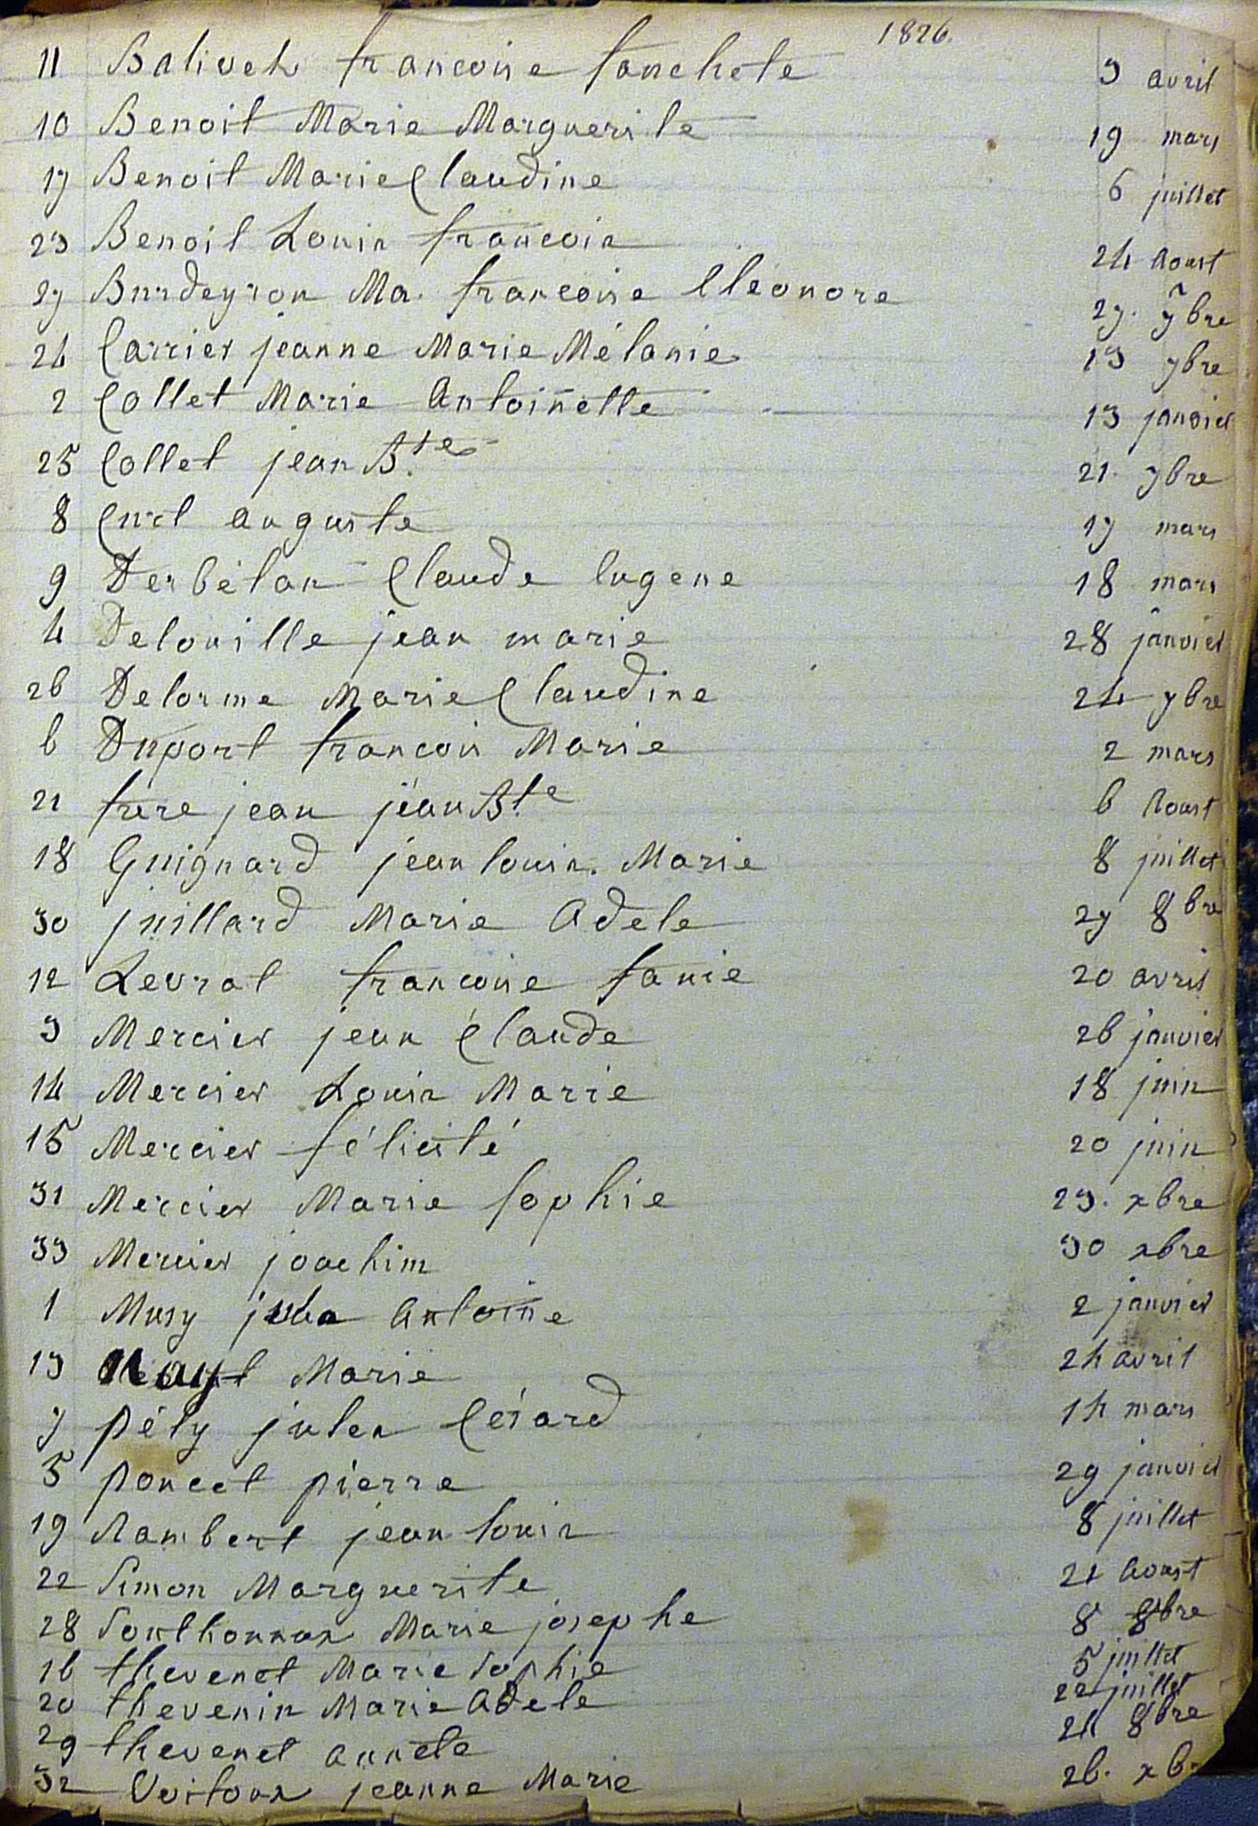 1826.
11 Balivet francoise fanchete 3 avril
10 Benoit Marie Marguerite 19 mars
17 Benoit Marie Claudine 6 juillet
23 Benoit Louis francois 24 Aoust
27 Burdeyron Ma. francoise Eléonore 27. 7bre
24 Carrier jeanne Marie Mélanie 13 7bre
2 Collet Marie Antoinette 13 janvier
25 Collet jean Bte 21. 7bre
8 auguste 17 mars
9 Claude Eugene 18 mars
4 Delouille jean marie 28 janvier
26 Delorme Marie Claudine 24 7bre
6 Duport francois Marie 2 mars
21 frere jean jean Bte 6 Aoust
18 Guignard jean louis. Marie 8 juillet
30 juillard Marie Adele 27 8bre
12 Levrat francoise fanie 20 avril
3 Mercier jean Claude 26 janvier
14 Mercier Louis Marie 18 juin
15 Mercier félicité 20 juin
31 Mercier Marie Sophie 23. xbre
33 Mercier joachim 30 xbre
1 Musy Antoine 2 janvier
13 Marie 24 avril
7 péty jules Césard 14 mars
5 poncet pierre 29 janvier
19 Rambert jean louis 8 juillet
22 Simon Marguerite 21 Aoust
28 Southonnax Marie josephe 8 8bre
16 thevenet Marie Sophie 5 juillet
20 thevenin Marie Adele 22 juillet
29 thevenet annete 24 8bre
32 Voitoux jeanne Marie 26.